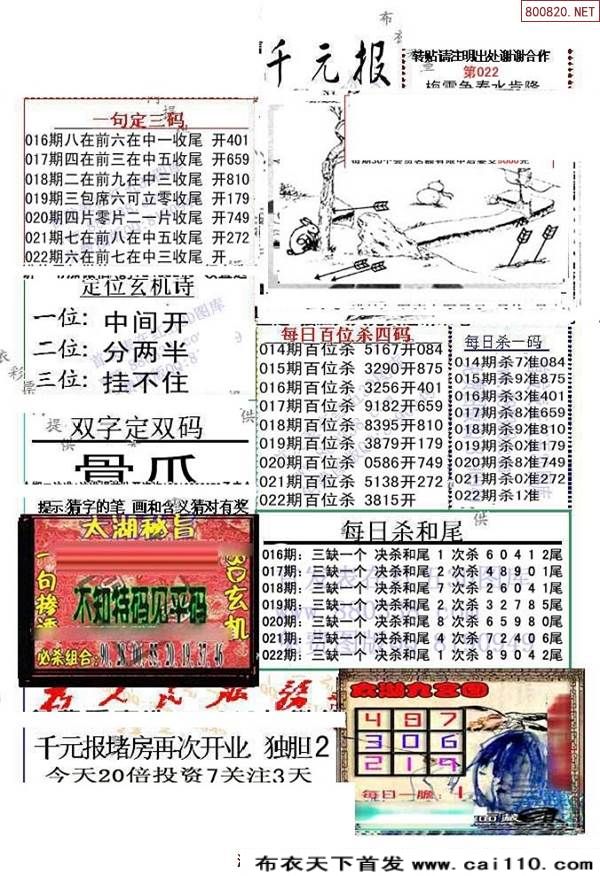 800820.NET
千元报
转贴请注明出处谢谢合作
第022
一句定三码
016期八在前六在中一收尾 开401
017期四在前三在中五收尾 开659
018期二在前九在中三收尾 开810
019期三包席六可立零收尾 开179
020期四片零片二一片收尾 开749
021期七在前八在中五收尾 开272
022期六在前七在中三收尾 开
定位玄机诗
一位: 中间开
二位: 分两半
三位: 挂不住
每日百位杀四码
014期百位杀 5167开084
015期百位杀 3290开875
016期百位杀 3256开401
017期百位杀 9182开659
018期百位杀 8395开810
019期百位杀 3879开179
020期百位杀 0586开749
021期百位杀 5138开272
022期百位杀 3815开
每日杀一码
014期杀7准084
015期杀9准875
016期杀3准401
017期杀8准659
018期杀9准810
019期杀0准179
020期杀8准749
021期杀5准272
022期杀1准
双字定双码
骨爪
提示:猜字的笔 画和含义猜对有奖
太湖秘旨
一句拨透
不知特码见平码
合玄机
必杀组合:90.28.00.55.20.19.37.46
每日杀和尾
016期: 三缺一个 决杀和尾 1 次杀 6 0 4 1 2尾
017期: 三缺一个 决杀和尾 2 次杀 4 8 9 0 1尾
018期: 三缺一个 决杀和尾 7 次杀 2 6 0 4 1尾
019期: 三缺一个 决杀和尾 2 次杀 3 2 7 8 5尾
020期: 三缺一个 决杀和尾 8 次杀 6 5 9 8 0尾
021期: 三缺一个 决杀和尾 4 次杀 7 0 2 4 0 6尾
022期: 三缺一个 决杀和尾 1 次杀 8 9 0 4 2尾
太湖九宫图
4 8 7
3 0 6
2 1 9
每日一胆: 1
千元报堵房再次开业 独胆2
今天20倍投资7关注3天
布衣天下首发 www.cai110.com